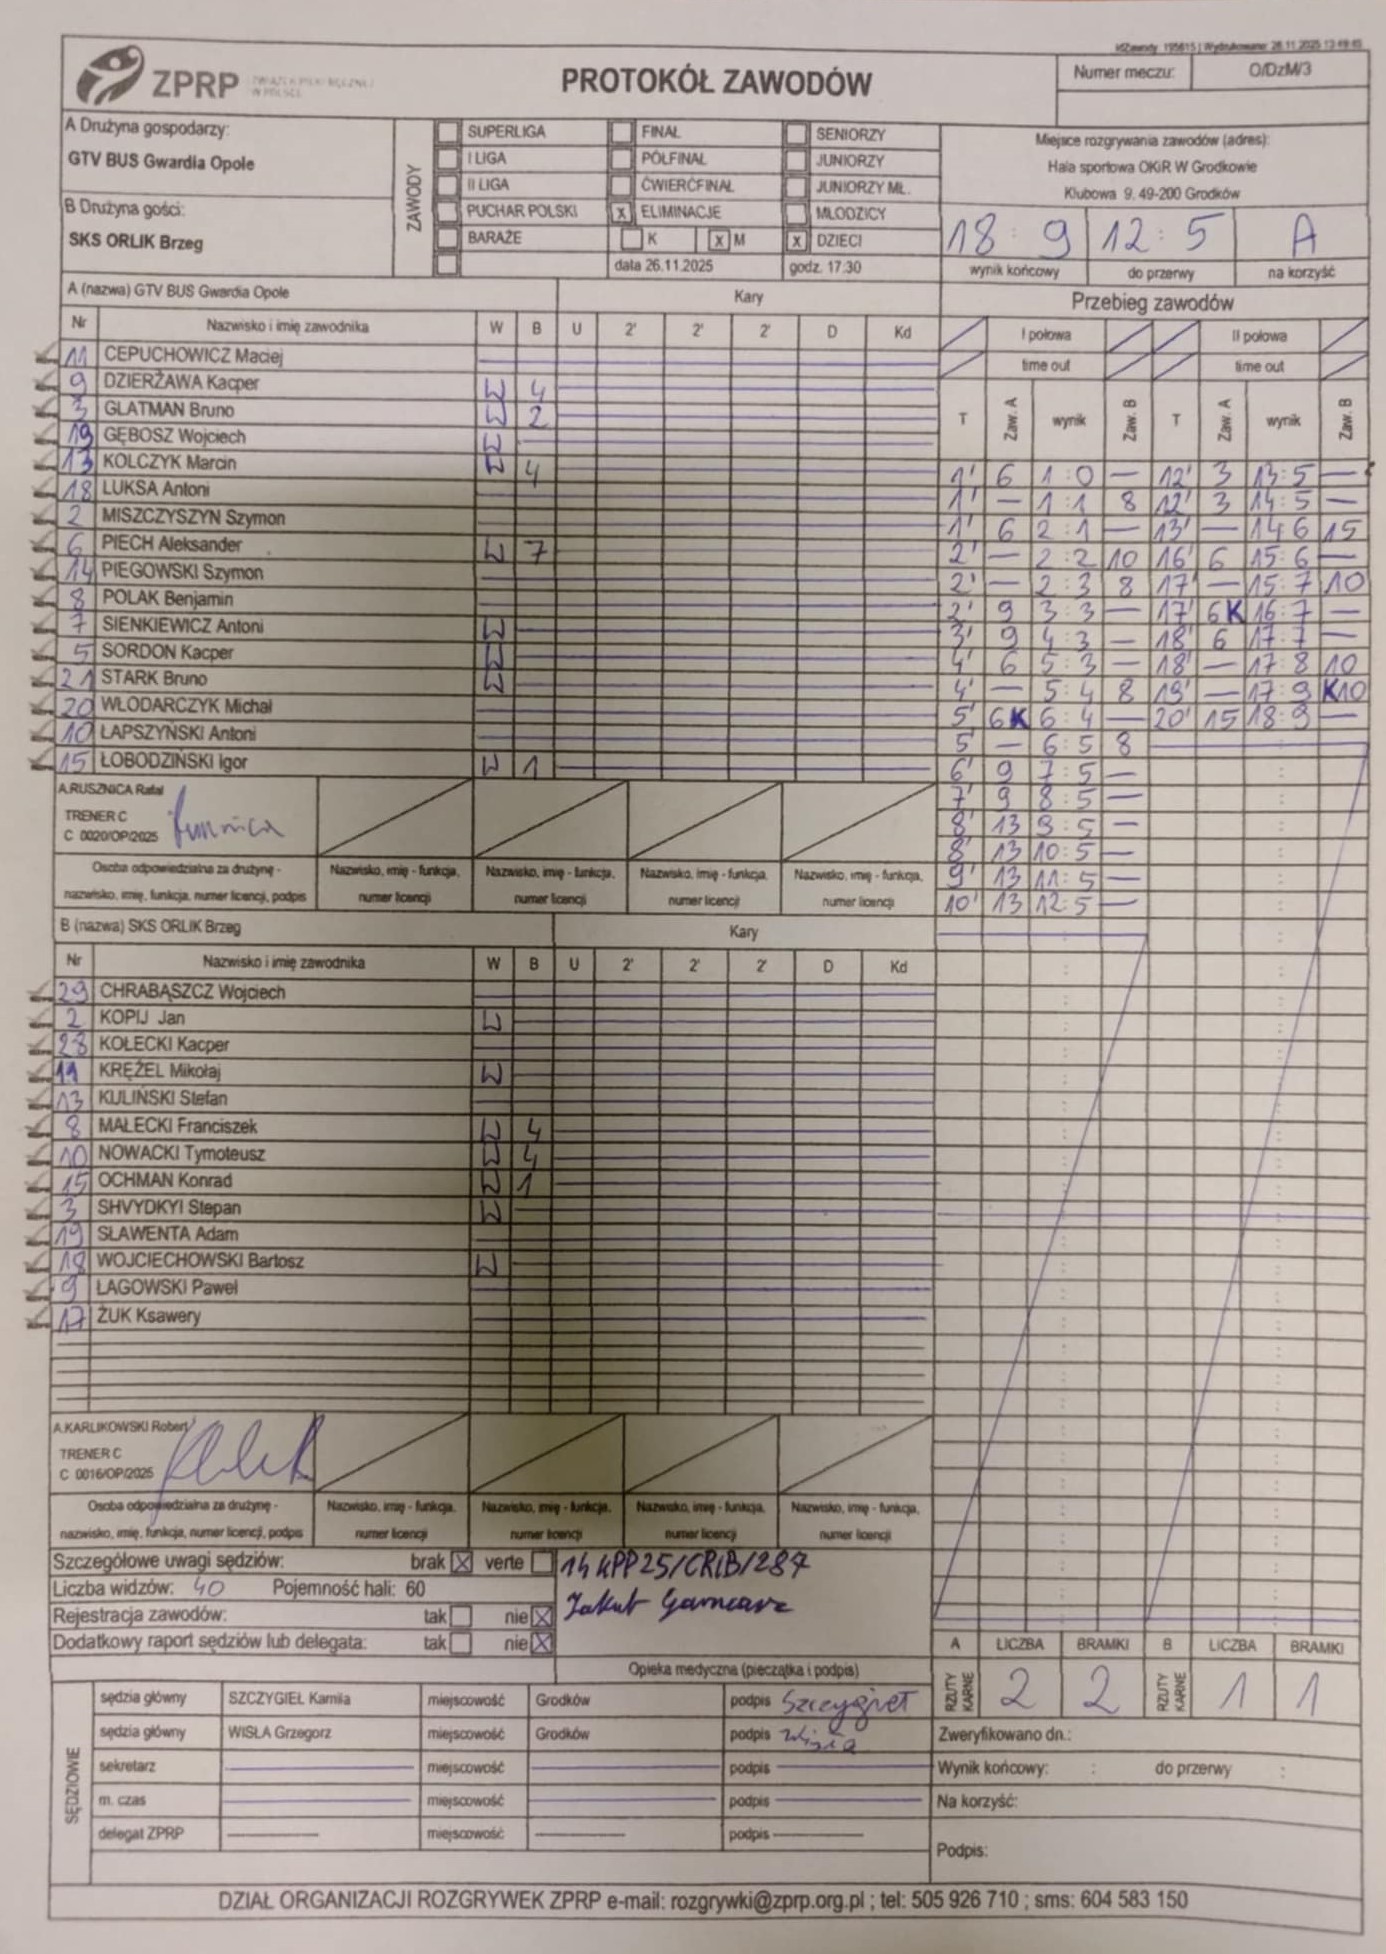 idZawody: 195615 | Wydrukowano: 26.11.2025 13:49:45
ZPRP ZWIĄZEK PIŁKI RĘCZNEJ W POLSCE
PROTOKÓŁ ZAWODÓW
Numer meczu: O/DzM/3
A Drużyna gospodarzy:
GTV BUS Gwardia Opole
B Drużyna gości:
SKS ORLIK Brzeg
ZAWODY
SUPERLIGA FINAŁ SENIORZY
I LIGA PÓŁFINAŁ JUNIORZY
II LIGA ĆWIERĆFINAŁ JUNIORZY MŁ.
PUCHAR POLSKI x ELIMINACJE MŁODZICY
BARAŻE K x M x DZIECI
data 26.11.2025 godz. 17:30
Miejsce rozgrywania zawodów (adres):
Hala sportowa OKiR W Grodkowie
Klubowa 9, 49-200 Grodków
18 : 9 12 : 5 A
wynik końcowy do przerwy na korzyść
A (nazwa) GTV BUS Gwardia Opole Kary
Nr Nazwisko i imię zawodnika W B U 2' 2' 2' D Kd
11 CEPUCHOWICZ Maciej
9 DZIERŻAWA Kacper W 4
3 GLATMAN Bruno W 2
19 GĘBOSZ Wojciech W
13 KOLCZYK Marcin W 4
18 LUKSA Antoni
2 MISZCZYSZYN Szymon
6 PIECH Aleksander W 7
14 PIEGOWSKI Szymon
8 POLAK Benjamin
7 SIENKIEWICZ Antoni W
5 SORDON Kacper W
21 STARK Bruno W
20 WŁODARCZYK Michał
10 ŁAPSZYŃSKI Antoni
15 ŁOBODZIŃSKI Igor W 1
A.RUSZNICA Rafał
TRENER C
C 0020/OP/2025 Rusznica
Osoba odpowiedzialna za drużynę - nazwisko, imię, funkcja, numer licencji, podpis
Nazwisko, imię - funkcja, numer licencji
Nazwisko, imię - funkcja, numer licencji
Nazwisko, imię - funkcja, numer licencji
Nazwisko, imię - funkcja, numer licencji
Przebieg zawodów
I połowa II połowa
time out time out
T Zaw. A wynik Zaw. B T Zaw. A wynik Zaw. B
1' 6 1:0 — 12' 3 13:5 —
1' — 1:1 8 12' 3 14:5 —
1' 6 2:1 — 13' — 14 6 15
2' — 2:2 10 16' 6 15:6 —
2' — 2:3 8 17' — 15:7 10
2' 9 3:3 — 17' 6K 16:7 —
3' 9 4:3 — 18' 6 17:7 —
4' 6 5:3 — 18' — 17:8 10
4' — 5:4 8 19' — 17:9 K10
5' 6K 6:4 — 20' 15 18:9 —
5' — 6:5 8
6' 9 7:5 —
7' 9 8:5 —
8' 13 9:5 —
8' 13 10:5 —
9' 13 11:5 —
10' 13 12:5 —
B (nazwa) SKS ORLIK Brzeg Kary
Nr Nazwisko i imię zawodnika W B U 2' 2' 2' D Kd
29 CHRABĄSZCZ Wojciech
2 KOPIJ Jan W
23 KOŁECKI Kacper
11 KRĘŻEL Mikołaj W
13 KULIŃSKI Stefan
8 MAŁECKI Franciszek W 4
10 NOWACKI Tymoteusz W 4
15 OCHMAN Konrad W 1
3 SHVYDKYI Stepan W
19 SŁAWENTA Adam
18 WOJCIECHOWSKI Bartosz W
9 ŁAGOWSKI Paweł
17 ŻUK Ksawery
A.KARLIKOWSKI Robert
TRENER C
C 0016/OP/2025
Osoba odpowiedzialna za drużynę - nazwisko, imię, funkcja, numer licencji, podpis
Nazwisko, imię - funkcja, numer licencji
Nazwisko, imię - funkcja, numer licencji
Nazwisko, imię - funkcja, numer licencji
Nazwisko, imię - funkcja, numer licencji
Szczegółowe uwagi sędziów: brak x verte
Liczba widzów: 40 Pojemność hali: 60
Rejestracja zawodów: tak nie x
Dodatkowy raport sędziów lub delegata: tak nie x
14 KPP25/CRiB/287
Jakub Garncarz
Opieka medyczna (pieczątka i podpis)
A LICZBA BRAMKI B LICZBA BRAMKI
RZUTY KARNE 2 2 RZUTY KARNE 1 1
SĘDZIOWIE
sędzia główny SZCZYGIEŁ Kamila miejscowość Grodków podpis Szczygieł
sędzia główny WISŁA Grzegorz miejscowość Grodków podpis Wisła
sekretarz miejscowość podpis
m. czas miejscowość podpis
delegat ZPRP miejscowość podpis
Zweryfikowano dn.:
Wynik końcowy: : do przerwy :
Na korzyść:
Podpis:
DZIAŁ ORGANIZACJI ROZGRYWEK ZPRP e-mail: rozgrywki@zprp.org.pl ; tel: 505 926 710 ; sms: 604 583 150